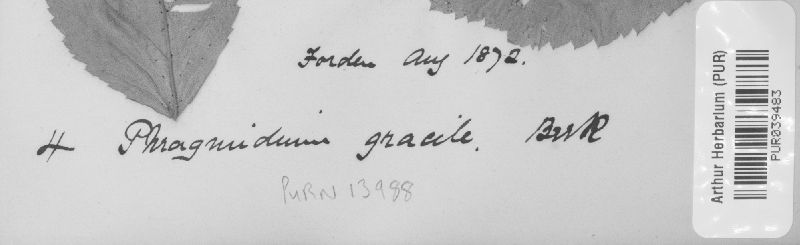 Forden Aug 1872.
4 Phragmidium gracile. Berk
PURN 13988
Arthur Herbarium (PUR)
PUR039483